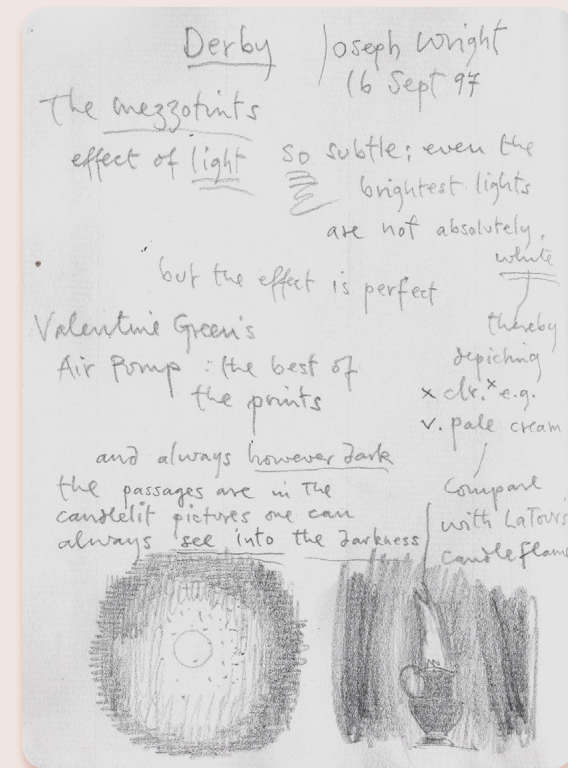 Derby
Joseph Wright
16 Sept 97
The mezzotints
effect of light
so subtle; even the
brightest lights
are not absolutely,
white
but the effect is perfect
thereby
depicting
x clr.x e.g.
v. pale cream
Valentine Green's
Air Pump : the best of
the prints
and always however dark
the passages are in the
candlelit pictures one can
always see into the darkness
Compare
with LaTours
candleflame